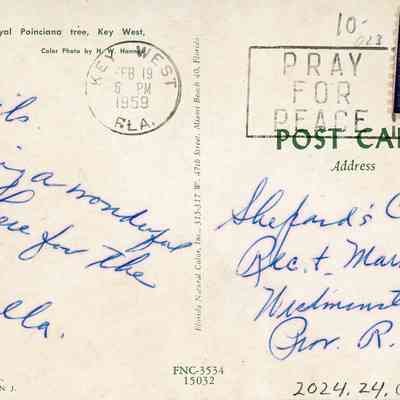 yal Poinciana tree, Key West,
Color Photo by H. W. Hannau
KEY WEST
FEB 19
6 PM
1959
FLA.
10-
023
PRAY
FOR
PEACE
POST CA
Address
a wonderful
here for the
lla.
Florida Natural Color, Inc., 315-317 W. 47th Street, Miami Beach 40, Florida
Shepard's C
Rec. + Mar
Westminst
Prov. R.
FNC-3534
15032
N J.
2024.24.